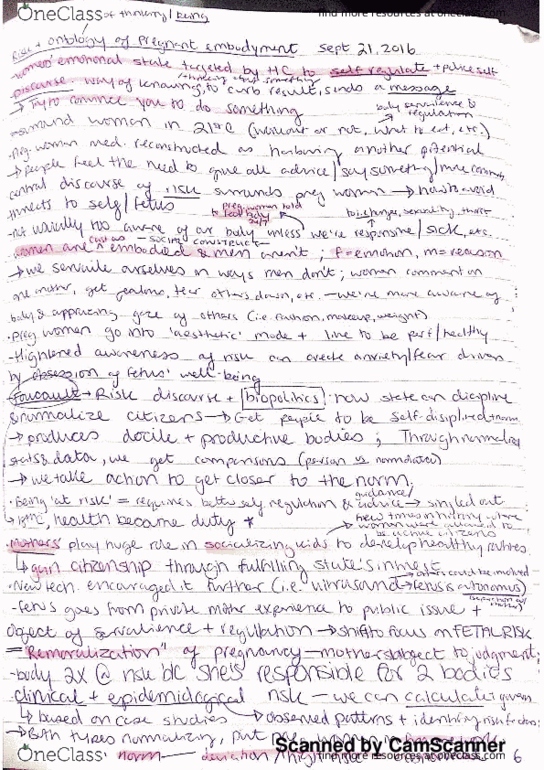 OneClass of thinking/being find more resources at oneclass.com
Risk + ontology of Pregnant embodyment Sept 21, 2016
women emotional state targeted by HC to self regulate + police self
discourse: way of knowing, to curb result, sends a message
→ Try to convince you to do something
body surveillance & regulation
around women in 21st C (workout or not, what to eat, etc.)
• Preg. women med. reconstructed as harbouring another potential
→ people feel the need to give all advice / say something /
central discourse of risk surrounds preg women → how to avoid
threats to self/fetus
preg. women told to feel body 24/7
-not usually too aware of our body unless we're responsive / sick, etc.
social construct
women are embodied & men aren't ; f=emotion, m=reason
→ we surveille ourselves in ways men don't; women comment on
one another, get jealous, tear others down, etc. — we're more aware of
body & appraising gaze of others (i.e. fashion, makeup, weight)
-preg women go into 'aesthetic' mode + like to be perf/healthy
-Hightened awareness of risk can create anxiety/fear driven
by obsession of fetus' well-being
Foucault → Risk discourse + biopolitics · how state can discipline
& normalize citizens → Get people to be self-disiplined + norm
→ produces docile + productive bodies ; Through normalizing
stats & data, we get comparisons (person vs normative)
→ we take action to get closer to the norm
• Being 'at risk' = requires better self regulation & guidance/ advice → singled out
→ 19thC, health became duty *
few times in history where women were allowed to be active citizens
• Mothers play huge role in socializing kids to develop healthy
↳ gain citizenship through fulfilling state's interest
→ others could be involved
• New tech. encouraged it further (i.e. ultrasound → fetus is autonomous)
-Fetus goes from private mothr experience to public issue +
Object of survailence + regulation → shift to focus on FETAL RISK
= "Remoralization" of pregnancy — mother subject to judgment;
-body 2X @ risk b/c she's responsible for 2 bodies
clinical + epidemiological risk — we can calculate given
↳ based on case studies → observed patterns + identifying risk factors;
→ Both types normalizing, put preg women in
Scanned by CamScanner
OneClass norm — deviation / high find more resources at oneclass.com 6